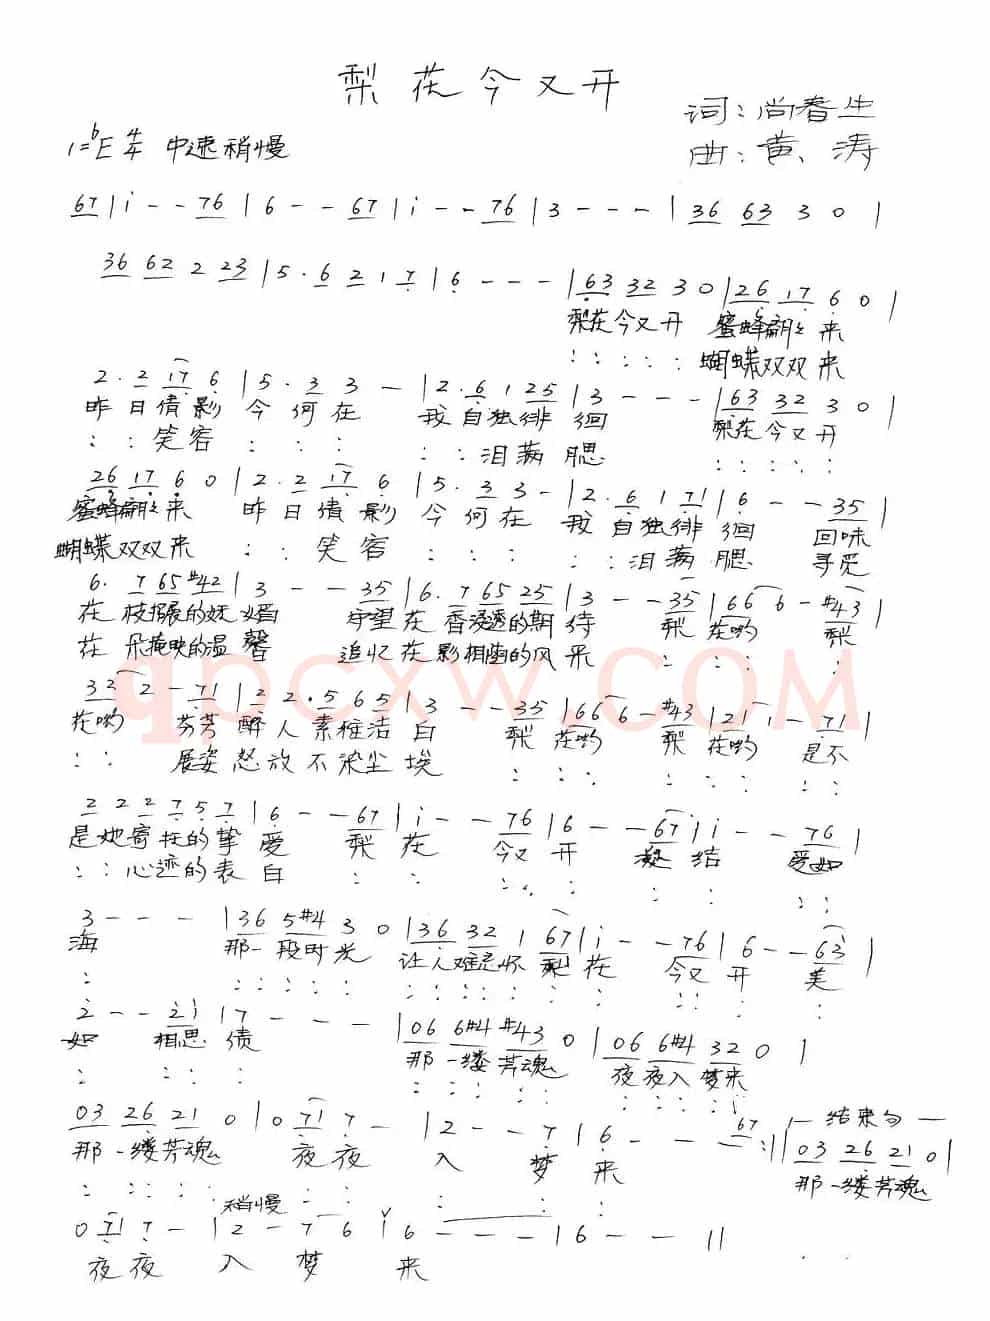 梨花今又开
词：尚春生
1=♭E 4/4 中速稍慢
曲：黄涛
67 | i - - 76 | 6 - - 67 | i - - 76 | 3 - - - | 36 63 3 0 |
36 62 2 23 | 5 . 6 2 1 7 | 6 - - - | 63 32 3 0 | 26 17 6 0 |
梨花今又开 蜜蜂翩翩来
: : : : : 蝴蝶双双来
2 . 2 17 6 | 5 . 3 3 - | 2 . 6 1 25 | 3 - - - | 63 32 3 0 |
昨日倩影 今何在 我自独徘徊 梨花今又开
: : 笑容 : : : : : 泪满腮 : : : : :
26 17 6 0 | 2 . 2 17 6 | 5 . 3 3 - | 2 . 6 1 71 | 6 - - 35 |
蜜蜂翩翩来 昨日倩影 今何在 我自独徘徊 回味
蝴蝶双双来 : : 笑容 : : : : : 泪满腮 寻觅
6 . 7 65 #42 | 3 - - 35 | 6 . 7 65 25 | 3 - - 35 | 66 6 - #43 |
在枝招展的妩媚 守望在香浸透的期待 梨花哟 梨
在朵掩映的温馨 追忆在影相随的风采 : : : :
33 2 - 71 | 2 2 2 . 5 6 5 | 3 - - 35 | 66 6 - #43 | 21 1 - 71 |
花哟 芬芳醉人素桩洁白 梨花哟 梨花哟 是不
: : 展姿怒放不染尘埃 : : : : : : : :
2 2 2 7 5 7 | 6 - - 67 | i - - 76 | 6 - - 67 | i - - 76 |
是她寄托的挚爱 梨花 今又开 凝结 爱如
: : 心迹的表白 : : : : : : : : :
3 - - - | 36 5#4 3 0 | 36 32 1 67 | i - - 76 | 6 - - 63 |
海 那一段时光 让人难忘怀 梨花 今又开 美
: : : : : : : : : : : : : : : : :
2 - - 21 | 7 - - - | 06 6#4 #43 0 | 06 6#4 32 0 |
如 相思债 那一缕芳魂 夜夜入梦来
: : : : : : : : : : : : : :
03 26 21 0 | 0 71 7 - | 2 - - 7 | 6 - - - 67 :|| — 结束句 —
03 26 21 0 |
那一缕芳魂 夜夜 入 梦 来 那一缕芳魂
: : : : : : : : : :
稍慢
0 71 7 - | 2 - 7 6 | 6 - - - | 6 - - ||
夜夜 入 梦 来
qpcxw.COM